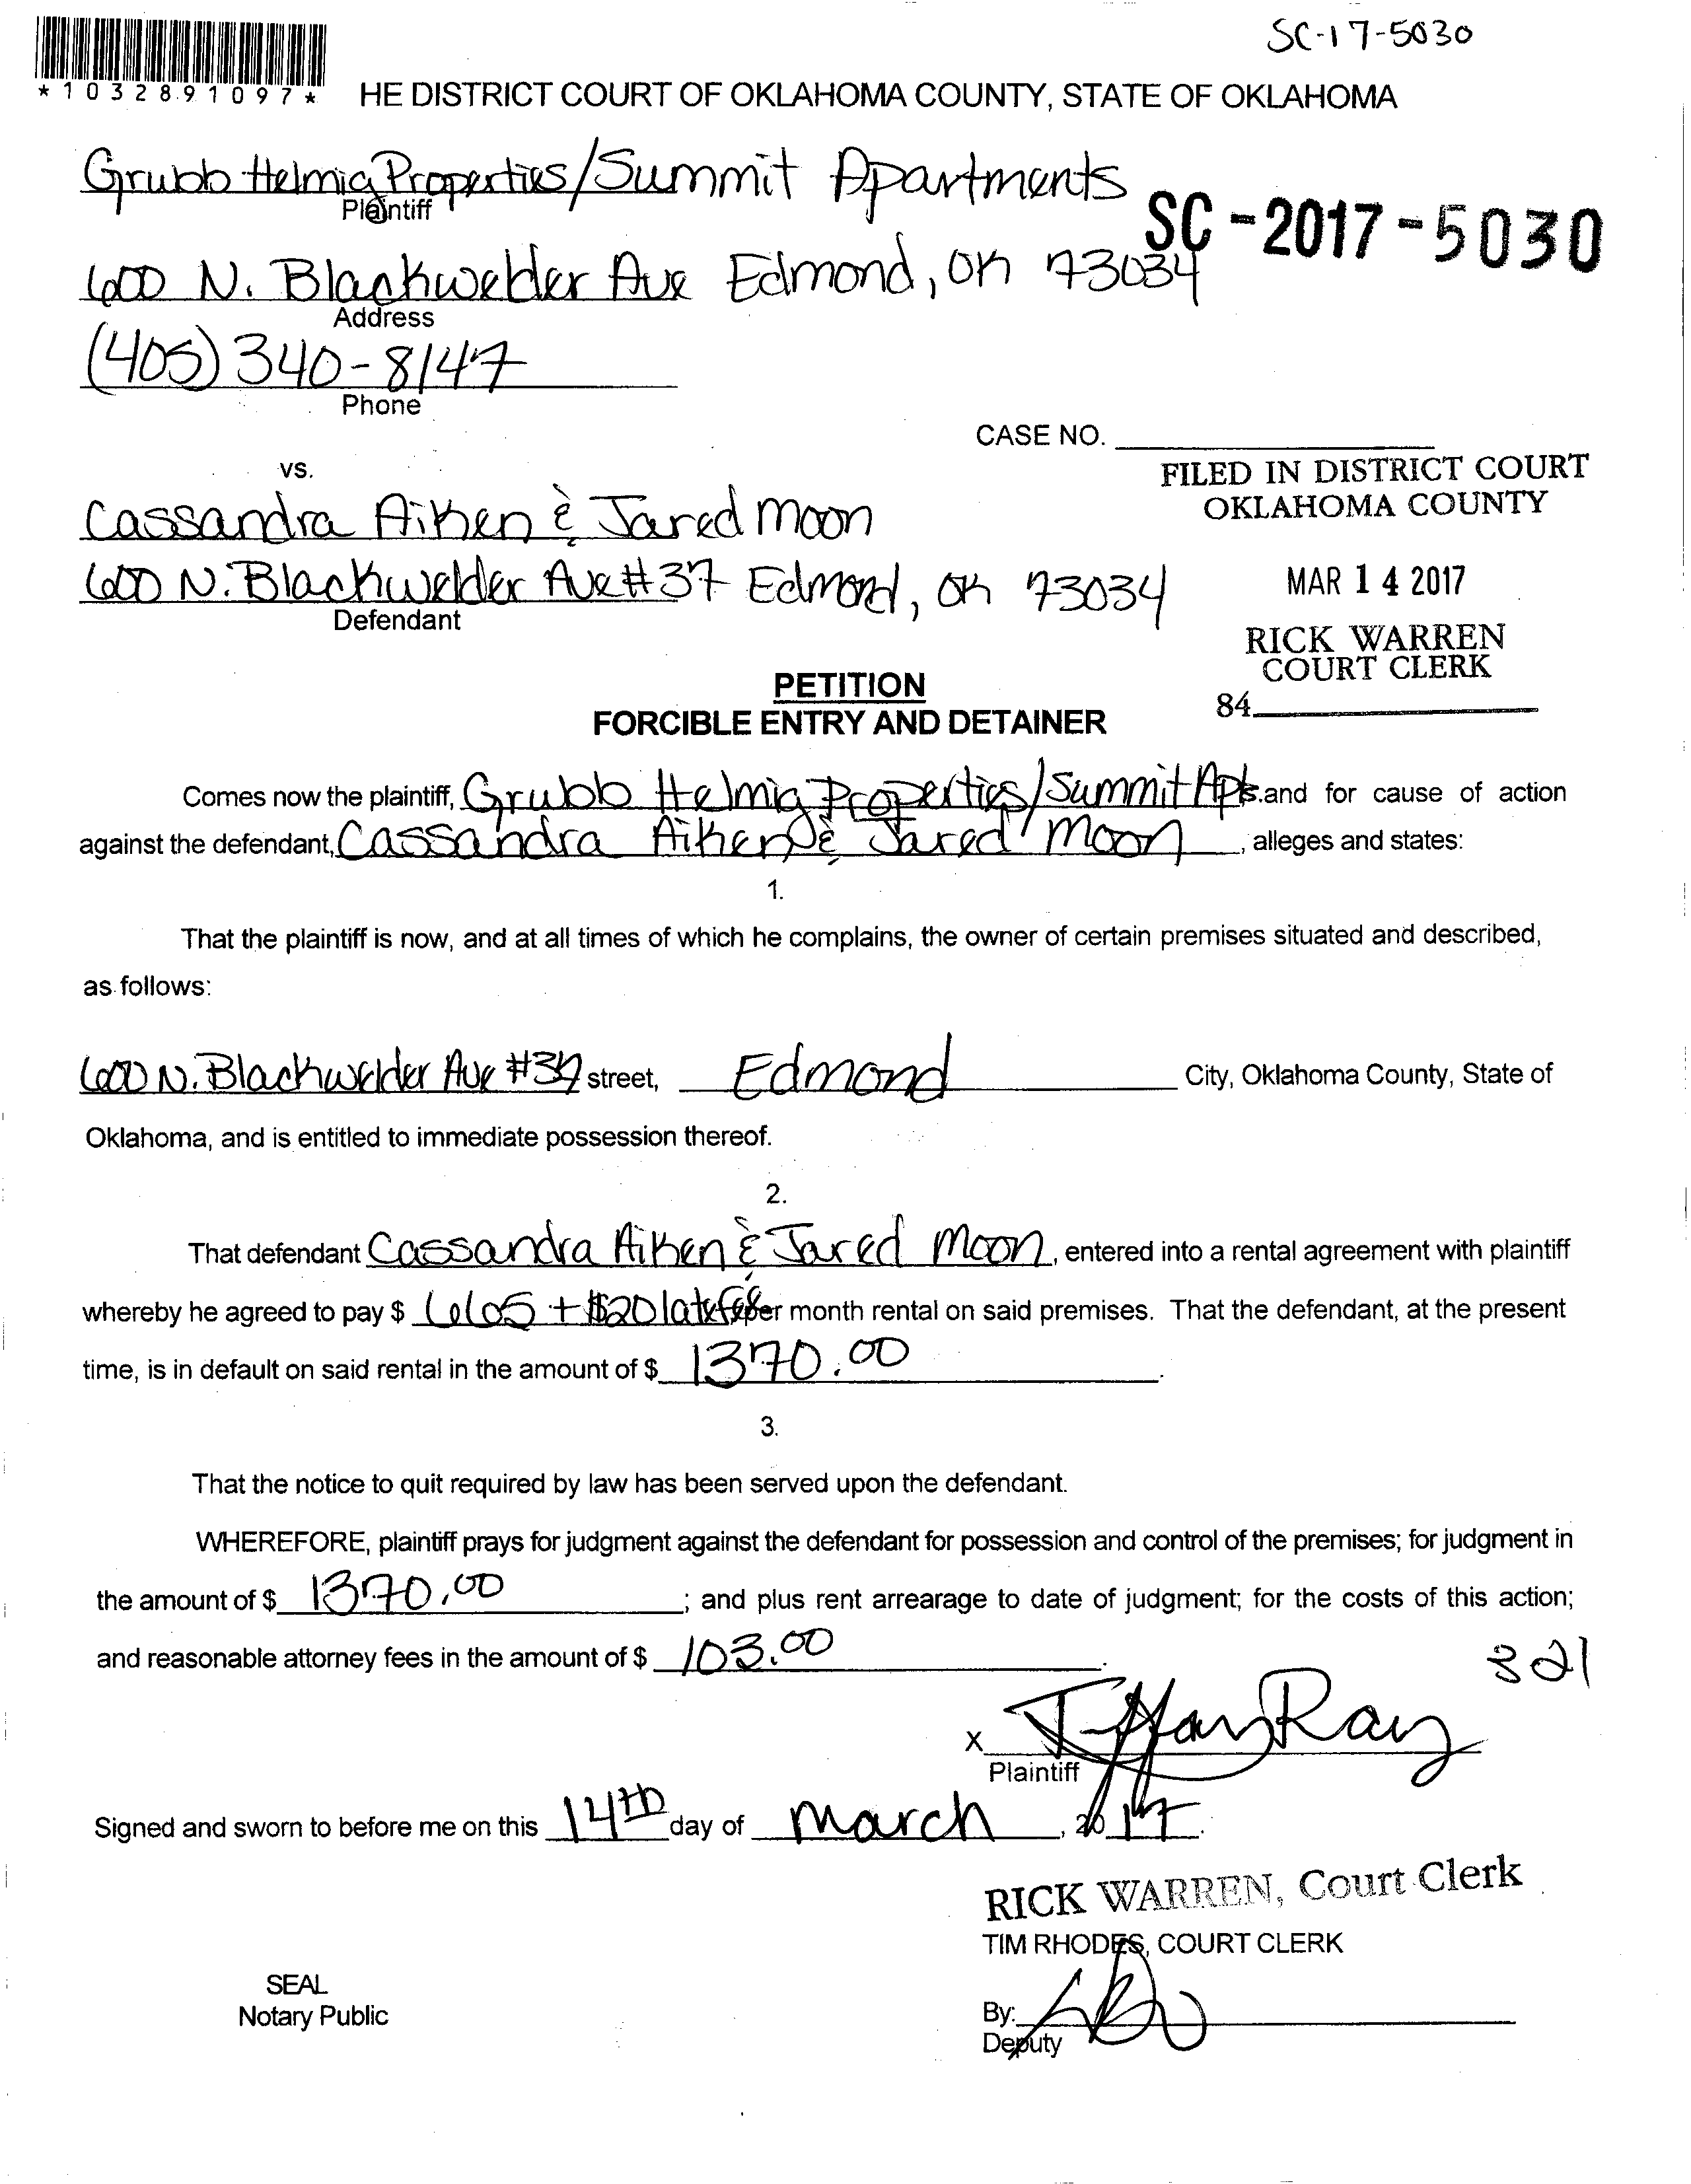 SC-17-5030
*1032891097*
HE DISTRICT COURT OF OKLAHOMA COUNTY, STATE OF OKLAHOMA
Grubb Helmig Properties/Summit Apartments
Plaintiff
SC-2017-5030
600 N. Blackwelder Ave Edmond, OK 73034
Address
(405) 340-8147
Phone
CASE NO.
vs.
FILED IN DISTRICT COURT
OKLAHOMA COUNTY
Cassandra Aiken & Jared Moon
600 N. Blackwelder Ave #37 Edmond, OK 73034
Defendant
MAR 14 2017
RICK WARREN
COURT CLERK
84
PETITION
FORCIBLE ENTRY AND DETAINER
Comes now the plaintiff, Grubb Helmig Properties/Summit Apts. and for cause of action
against the defendant, Cassandra Aiken & Jared Moon, alleges and states:
1.
That the plaintiff is now, and at all times of which he complains, the owner of certain premises situated and described,
as follows:
600 N. Blackwelder Ave #37 street, Edmond City, Oklahoma County, State of
Oklahoma, and is entitled to immediate possession thereof.
2.
That defendant Cassandra Aiken & Jared Moon, entered into a rental agreement with plaintiff
whereby he agreed to pay $ 665 + $20 late fee per month rental on said premises. That the defendant, at the present
time, is in default on said rental in the amount of $ 1370.00.
3.
That the notice to quit required by law has been served upon the defendant.
WHEREFORE, plaintiff prays for judgment against the defendant for possession and control of the premises; for judgment in
the amount of $ 1370.00; and plus rent arrearage to date of judgment; for the costs of this action;
and reasonable attorney fees in the amount of $ 103.00.
321
X Tiffany Ray
Plaintiff
Signed and sworn to before me on this 14th day of March, 2017.
RICK WARREN, Court Clerk
TIM RHODES, COURT CLERK
SEAL
Notary Public
By:
Deputy